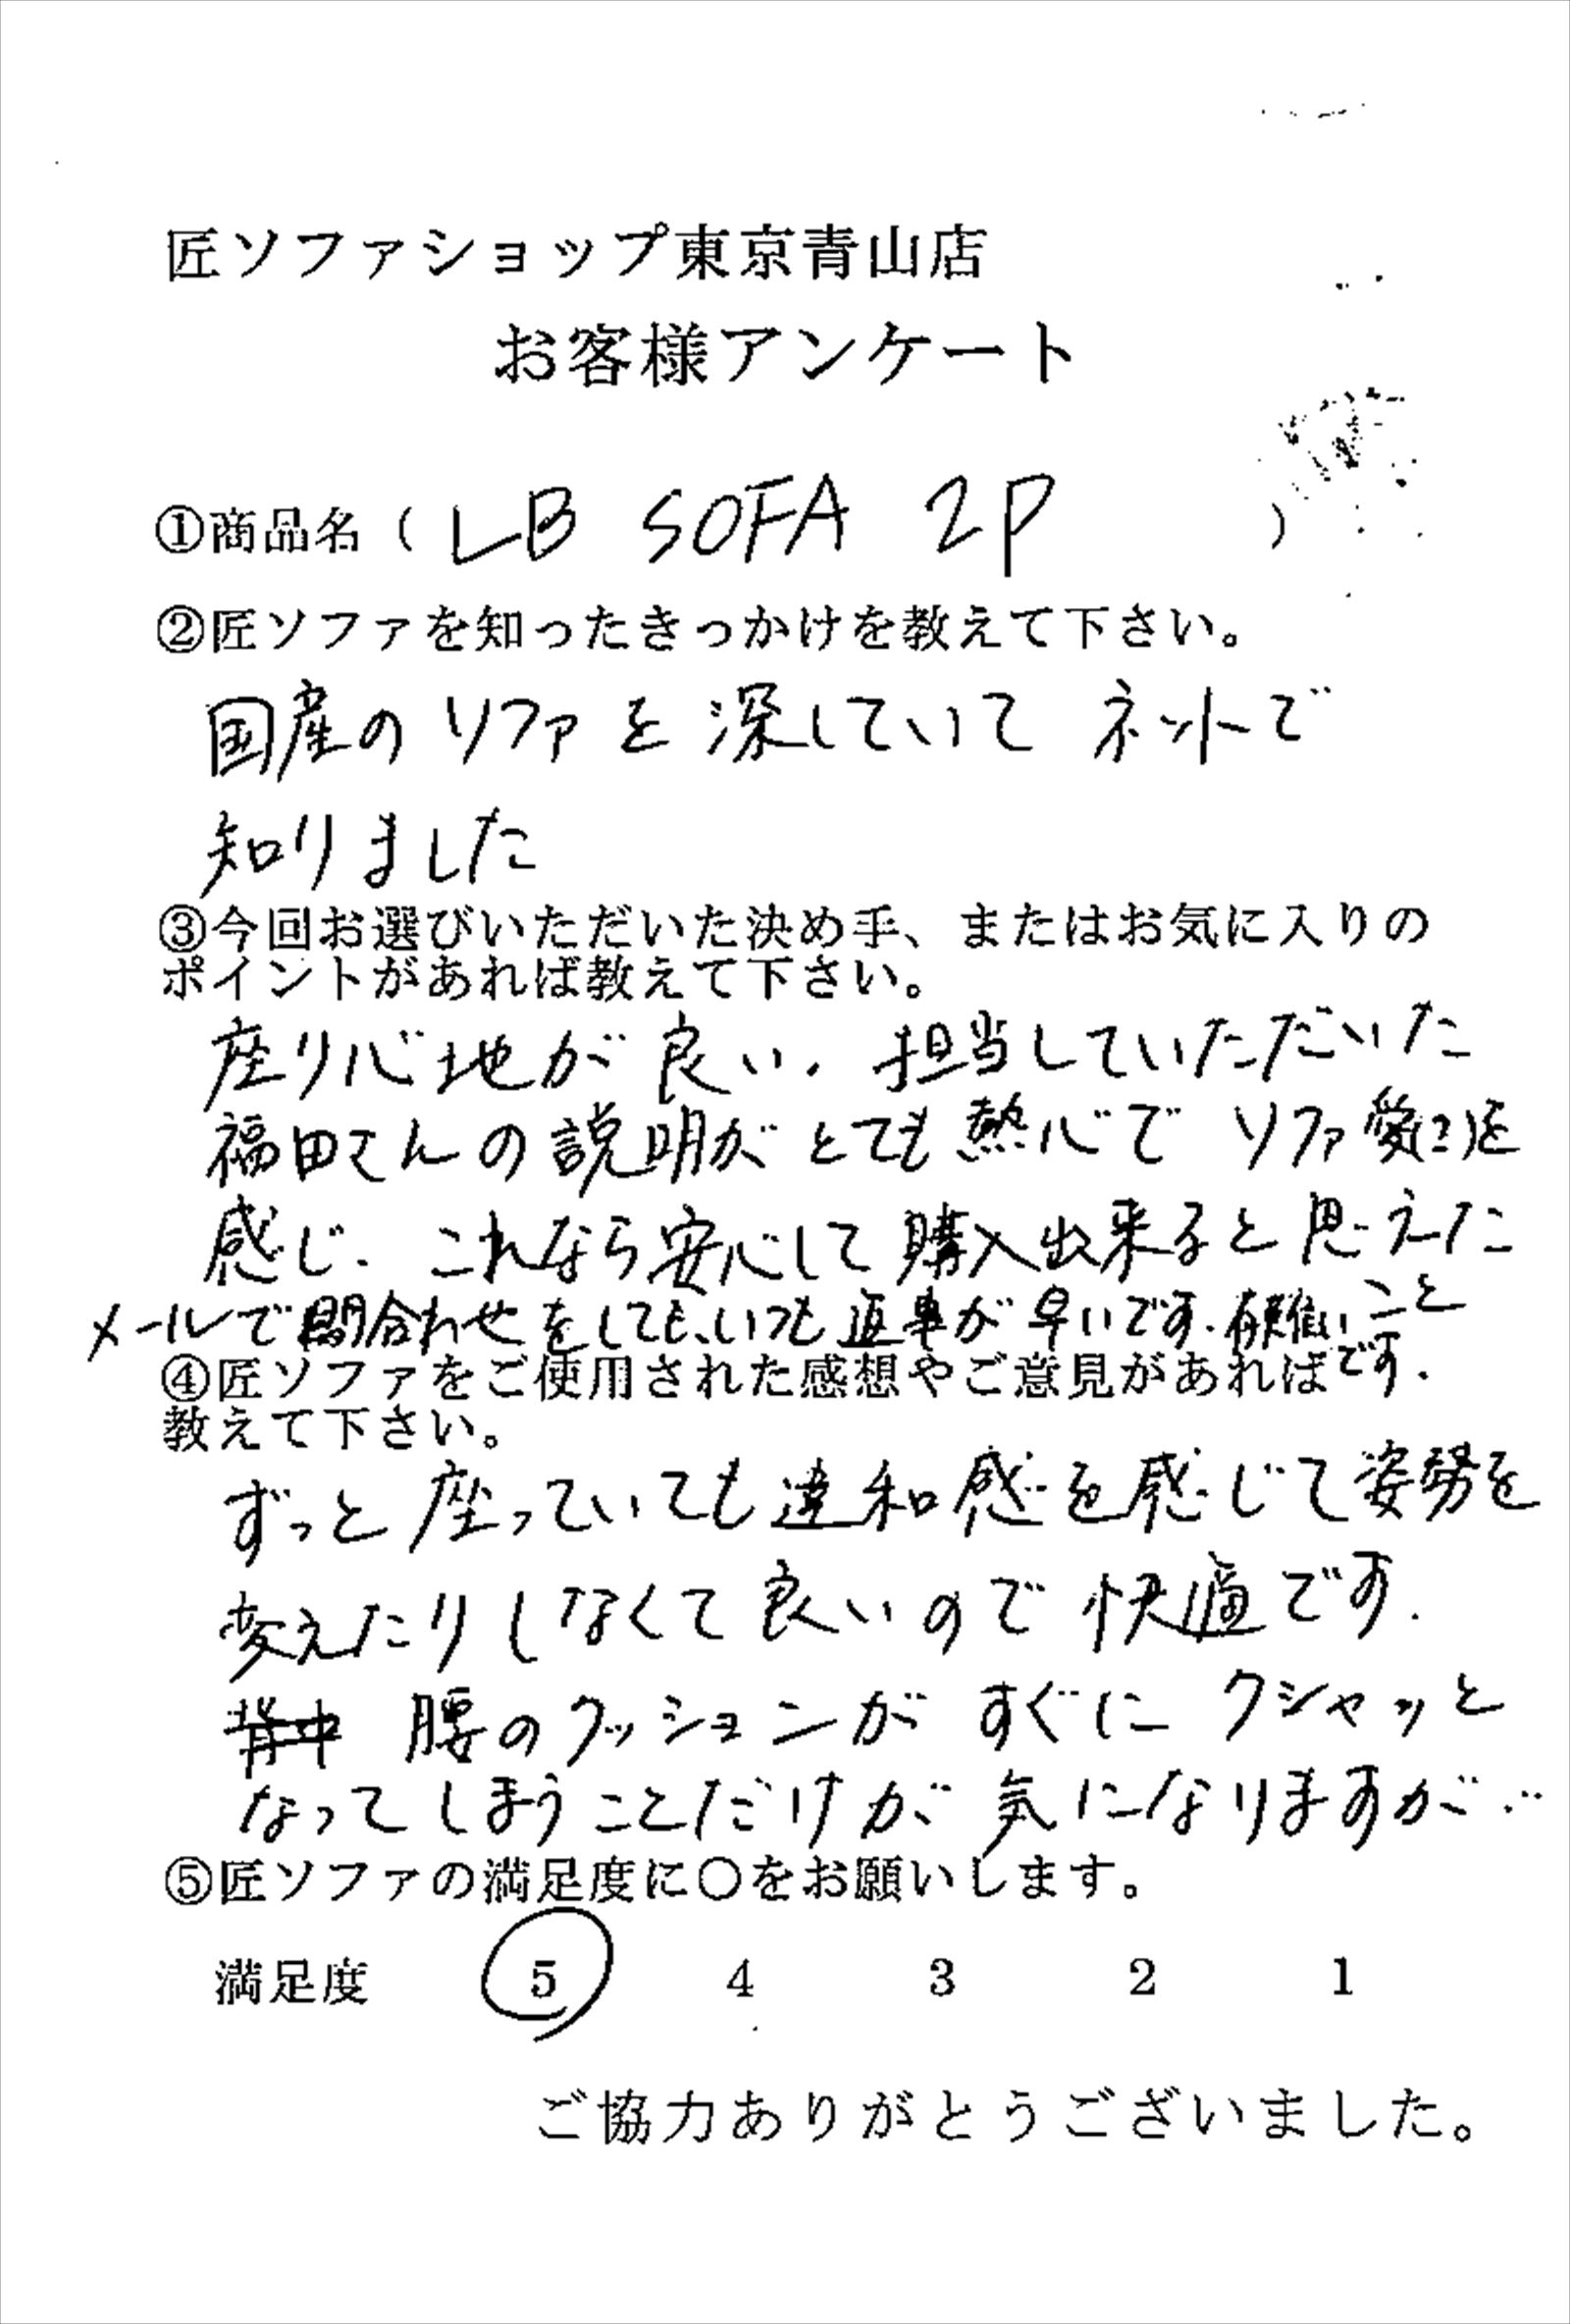 匠ソファショップ東京青山店
お客様アンケート
①商品名（ LB SOFA 2P ）
②匠ソファを知ったきっかけを教えて下さい。
国産のソファを探していて ネットで
知りました
③今回お選びいただいた決め手、またはお気に入りの
ポイントがあれば教えて下さい。
座り心地が良い. 担当していただいた
福田さんの説明がとても熱心で ソファ愛を
感じ. これなら安心して購入出来ると思えた
メールで問合わせをしても、いつも返事が早いです. 有難いこと
です.
④匠ソファをご使用された感想やご意見があれば
教えて下さい。
ずっと座っていても違和感を感じて姿勢を
変えたりしなくて良いので快適です.
腰のクッションが すぐに クシャッと
なってしまうことだけが気になりますが…
⑤匠ソファの満足度に○をお願いします。
満足度 5 4 3 2 1
ご協力ありがとうございました。